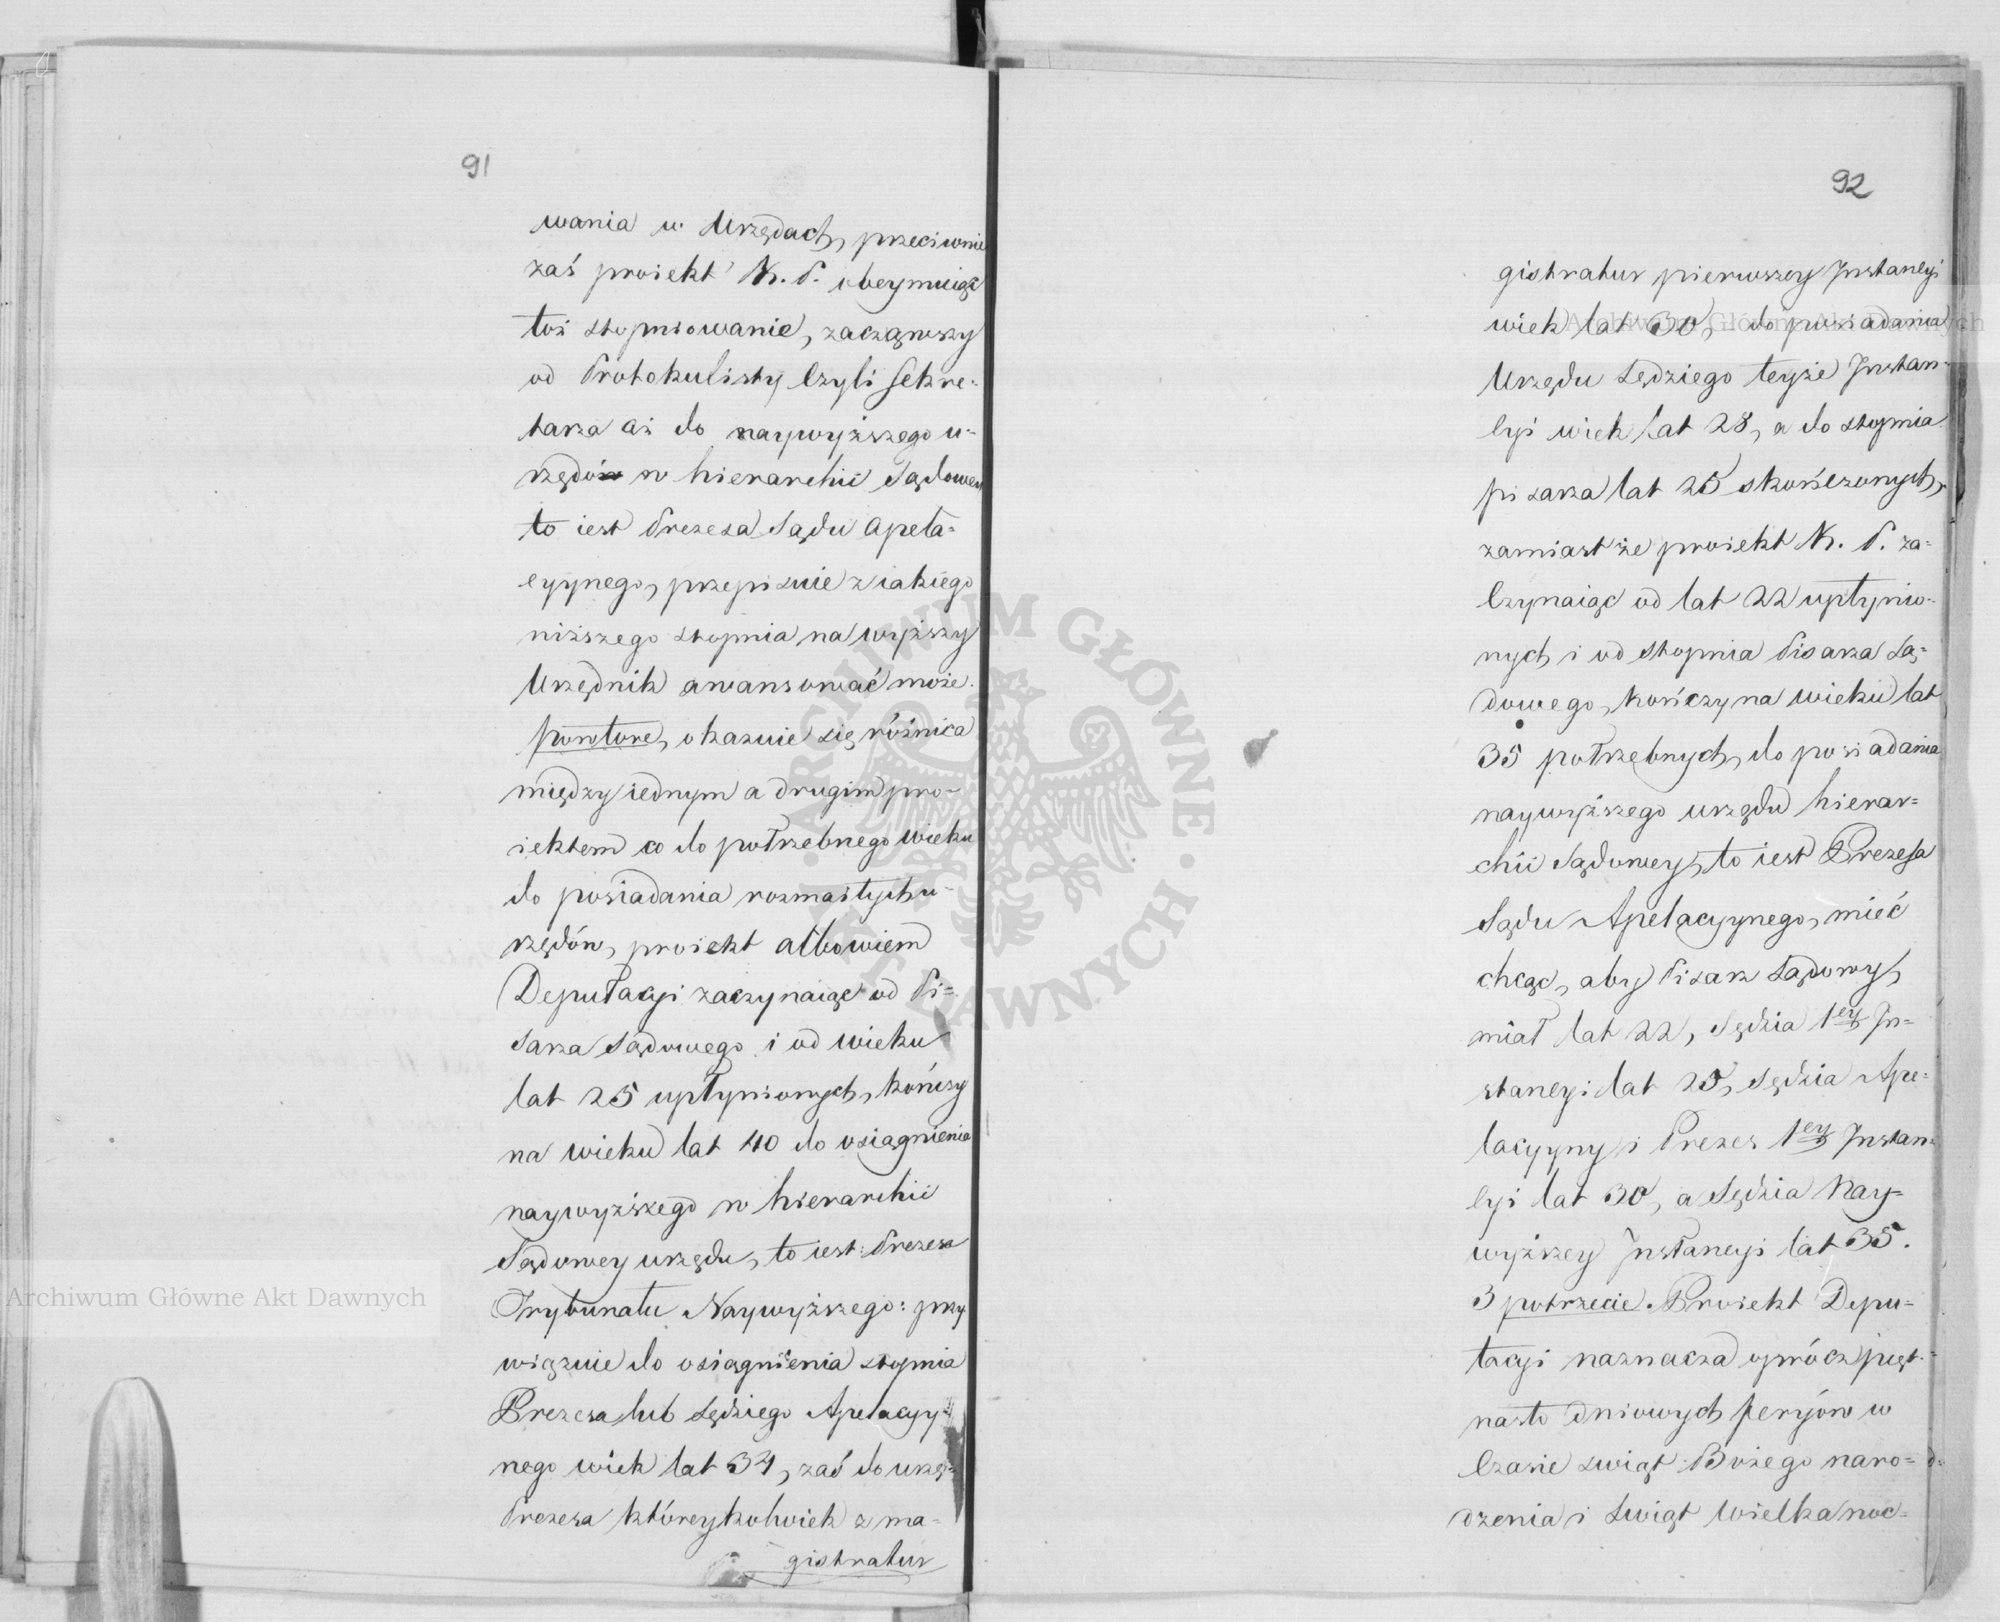 91
wania w Urzędach, przeciwnie
zaś proiekt K. P. obeymuiąc
toż stopniowanie, zacząwszy
od Protokulisty czyli Sekre=
tarza aż do naywyższego u=
rzędów w hierarchii Sądowey
to iest Prezesa Sądu Apela=
cyynego, przepisuie z iakiego
niższego stopnia na wyższy
Urzędnik awansować może.
powtore, okazuie się różnica
między iednym a drugim pro=
iektem co do potrzebnego wieku
do posiadania rozmaitych u=
rzędów, proiekt albowiem
Deputacyi zaczynaiąc od Pi=
sarza Sądowego i od wieku
lat 25 upłynionych, kończy
na wieku lat 40 do osiągnienia
naywyższego w hierarchii
Sądowey urzędu, to iest: Prezesa
Trybunału Naywyższego: przy
więzuie do osiągnienia stopnia
Prezesa lub Sędziego Apelacyy=
nego wiek lat 34, zaś do urzę=
Prezesa któreykolwiek z ma=
gistratur
92
gistratur pierwszey Instancyi
wiek lat 30, do posiadania
Urzędu Sędziego teyże Instan=
cyi wiek lat 28, a do stopnia
pisarza lat 25 skończonych,
zamiast że proiekt K. P. za=
czynaiąc od lat 22 upłynio=
nych i od stopnia Pisarza Są=
dowego, kończy na wieku lat
35 potrzebnych, do posiadania
naywyższego urzędu hierar=
chii Sądowey, to iest Prezesa
Sądu Apelacyynego, mieć
chcąc, aby Pisarz Sądowy,
miał lat 22, Sędzia 1ey In=
stancyi lat 25, Sędzia Ape=
lacyyny i Prezes 1ey Instan=
cyi lat 30, a Sędzia Nay=
wyższey Instancyi lat 35.
3 potrzecie. Proiekt Depu=
tacyi naznacza oprócz pięt=
nasto dniowych feryów w
czasie świąt Bożego naro=
dzenia i Świąt Wielkanoc=
Archiwum Główne Akt Dawnych
Archiwum Główne Akt Dawnych
ARCHIWUM GŁÓWNE AKT DAWNYCH